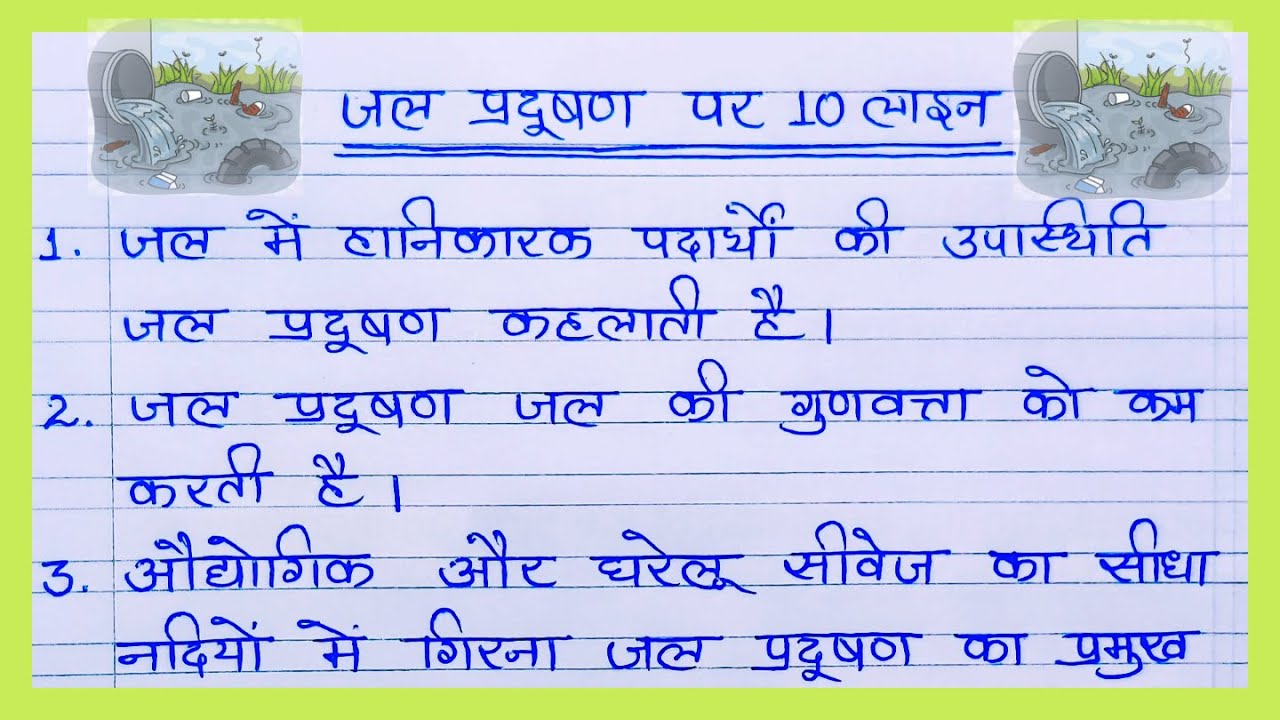 जल प्रदूषण पर 10 लाइन
1. जल में हानिकारक पदार्थों की उपास्थिति
जल प्रदूषण कहलाती है।
2. जल प्रदूषण जल की गुणवत्ता को कम
करती है।
3. औद्योगिक और घरेलू सीवेज का सीधा
नदियों में गिरना जल प्रदूषण का प्रमुख